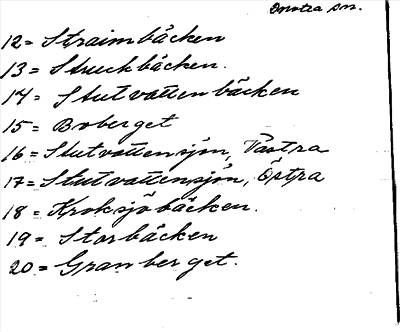 sn.
12 = Straimbäcken
13 = Struckbäcken.
14 = Slutvattenbäcken
15 = Boberget
16 = Slutvattensjön, Västra
17 = Slutvattensjön, Östra
18 = Kroksjöbäcken.
19 = Storbäcken
20 = Granberget.